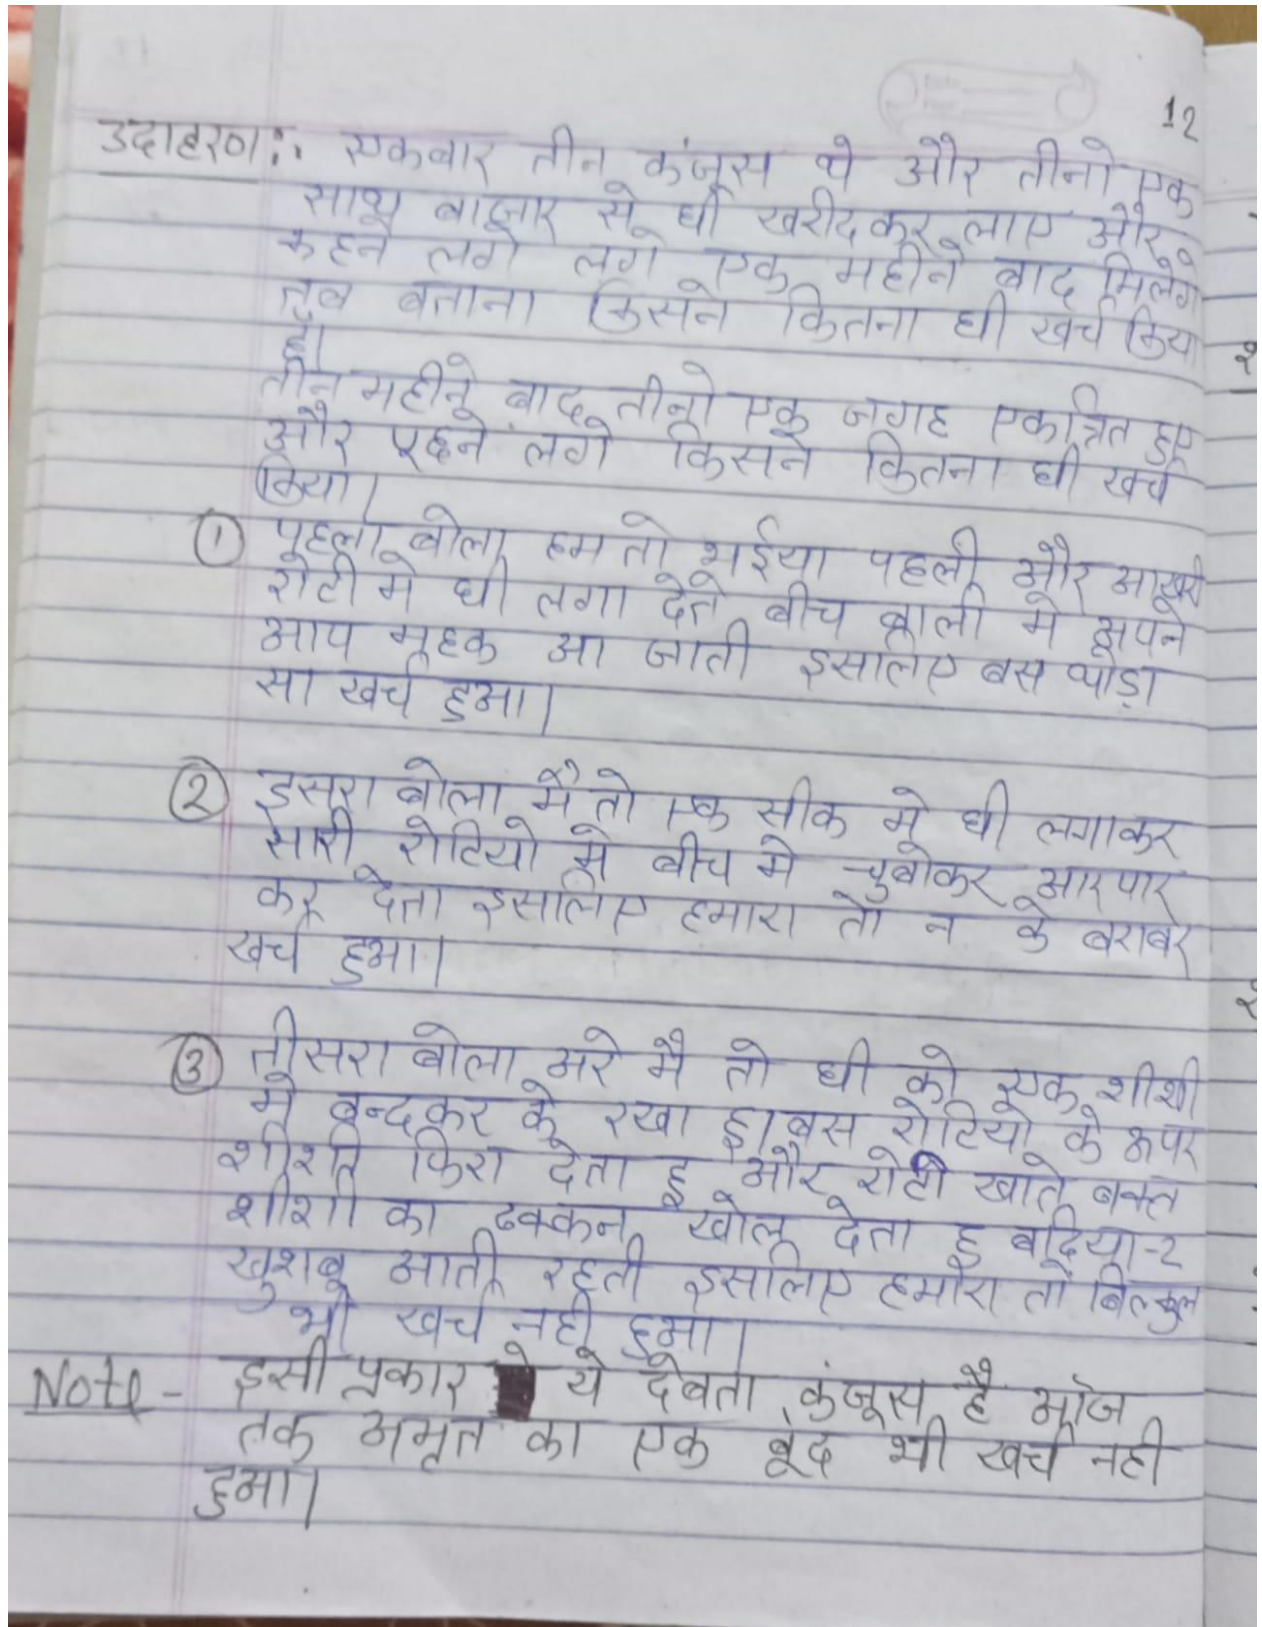 12
उदाहरण:. एकबार तीन कंजूस थे और तीनो एक
साथ बाजार से घी खरीदकर लाए और
कहने लगे लगे एक महीने बाद मिलेगे
तब बताना किसने कितना घी खर्च किया
है।
तीन महीने बाद तीनो एक जगह एकत्रित हुए
और पूछने लगे किसने कितना घी खर्च
किया।
① पहला बोला हम तो भईया पहली और आखरी
रोटी मे घी लगा देते बीच वाली मे अपने
आप महक आ जाती इसलिए बस थोड़ा
सा खर्च हुआ।
② दूसरा बोला मै तो एक सीक मे घी लगाकर
सारी रोटियो मे बीच मे चुबोकर आर पार
कर देता इसलिए हमारा तो न के बराबर
खर्च हुआ।
③ तीसरा बोला अरे मै तो घी को एक शीशी
मे बन्दकर के रखा हू। बस रोटियो के ऊपर
शीशी फिरा देता हू और रोटी खाते बक्त
शीशी का ढक्कन खोल देता हू बढिया-2
खुशबू आती रहती इसलिए हमारा तो बिल्कुल
भी खर्च नही हुआ।
Note - इसी प्रकार ये देवता कंजूस है आज
तक अमृत का एक बूंद भी खर्च नही
हुआ।